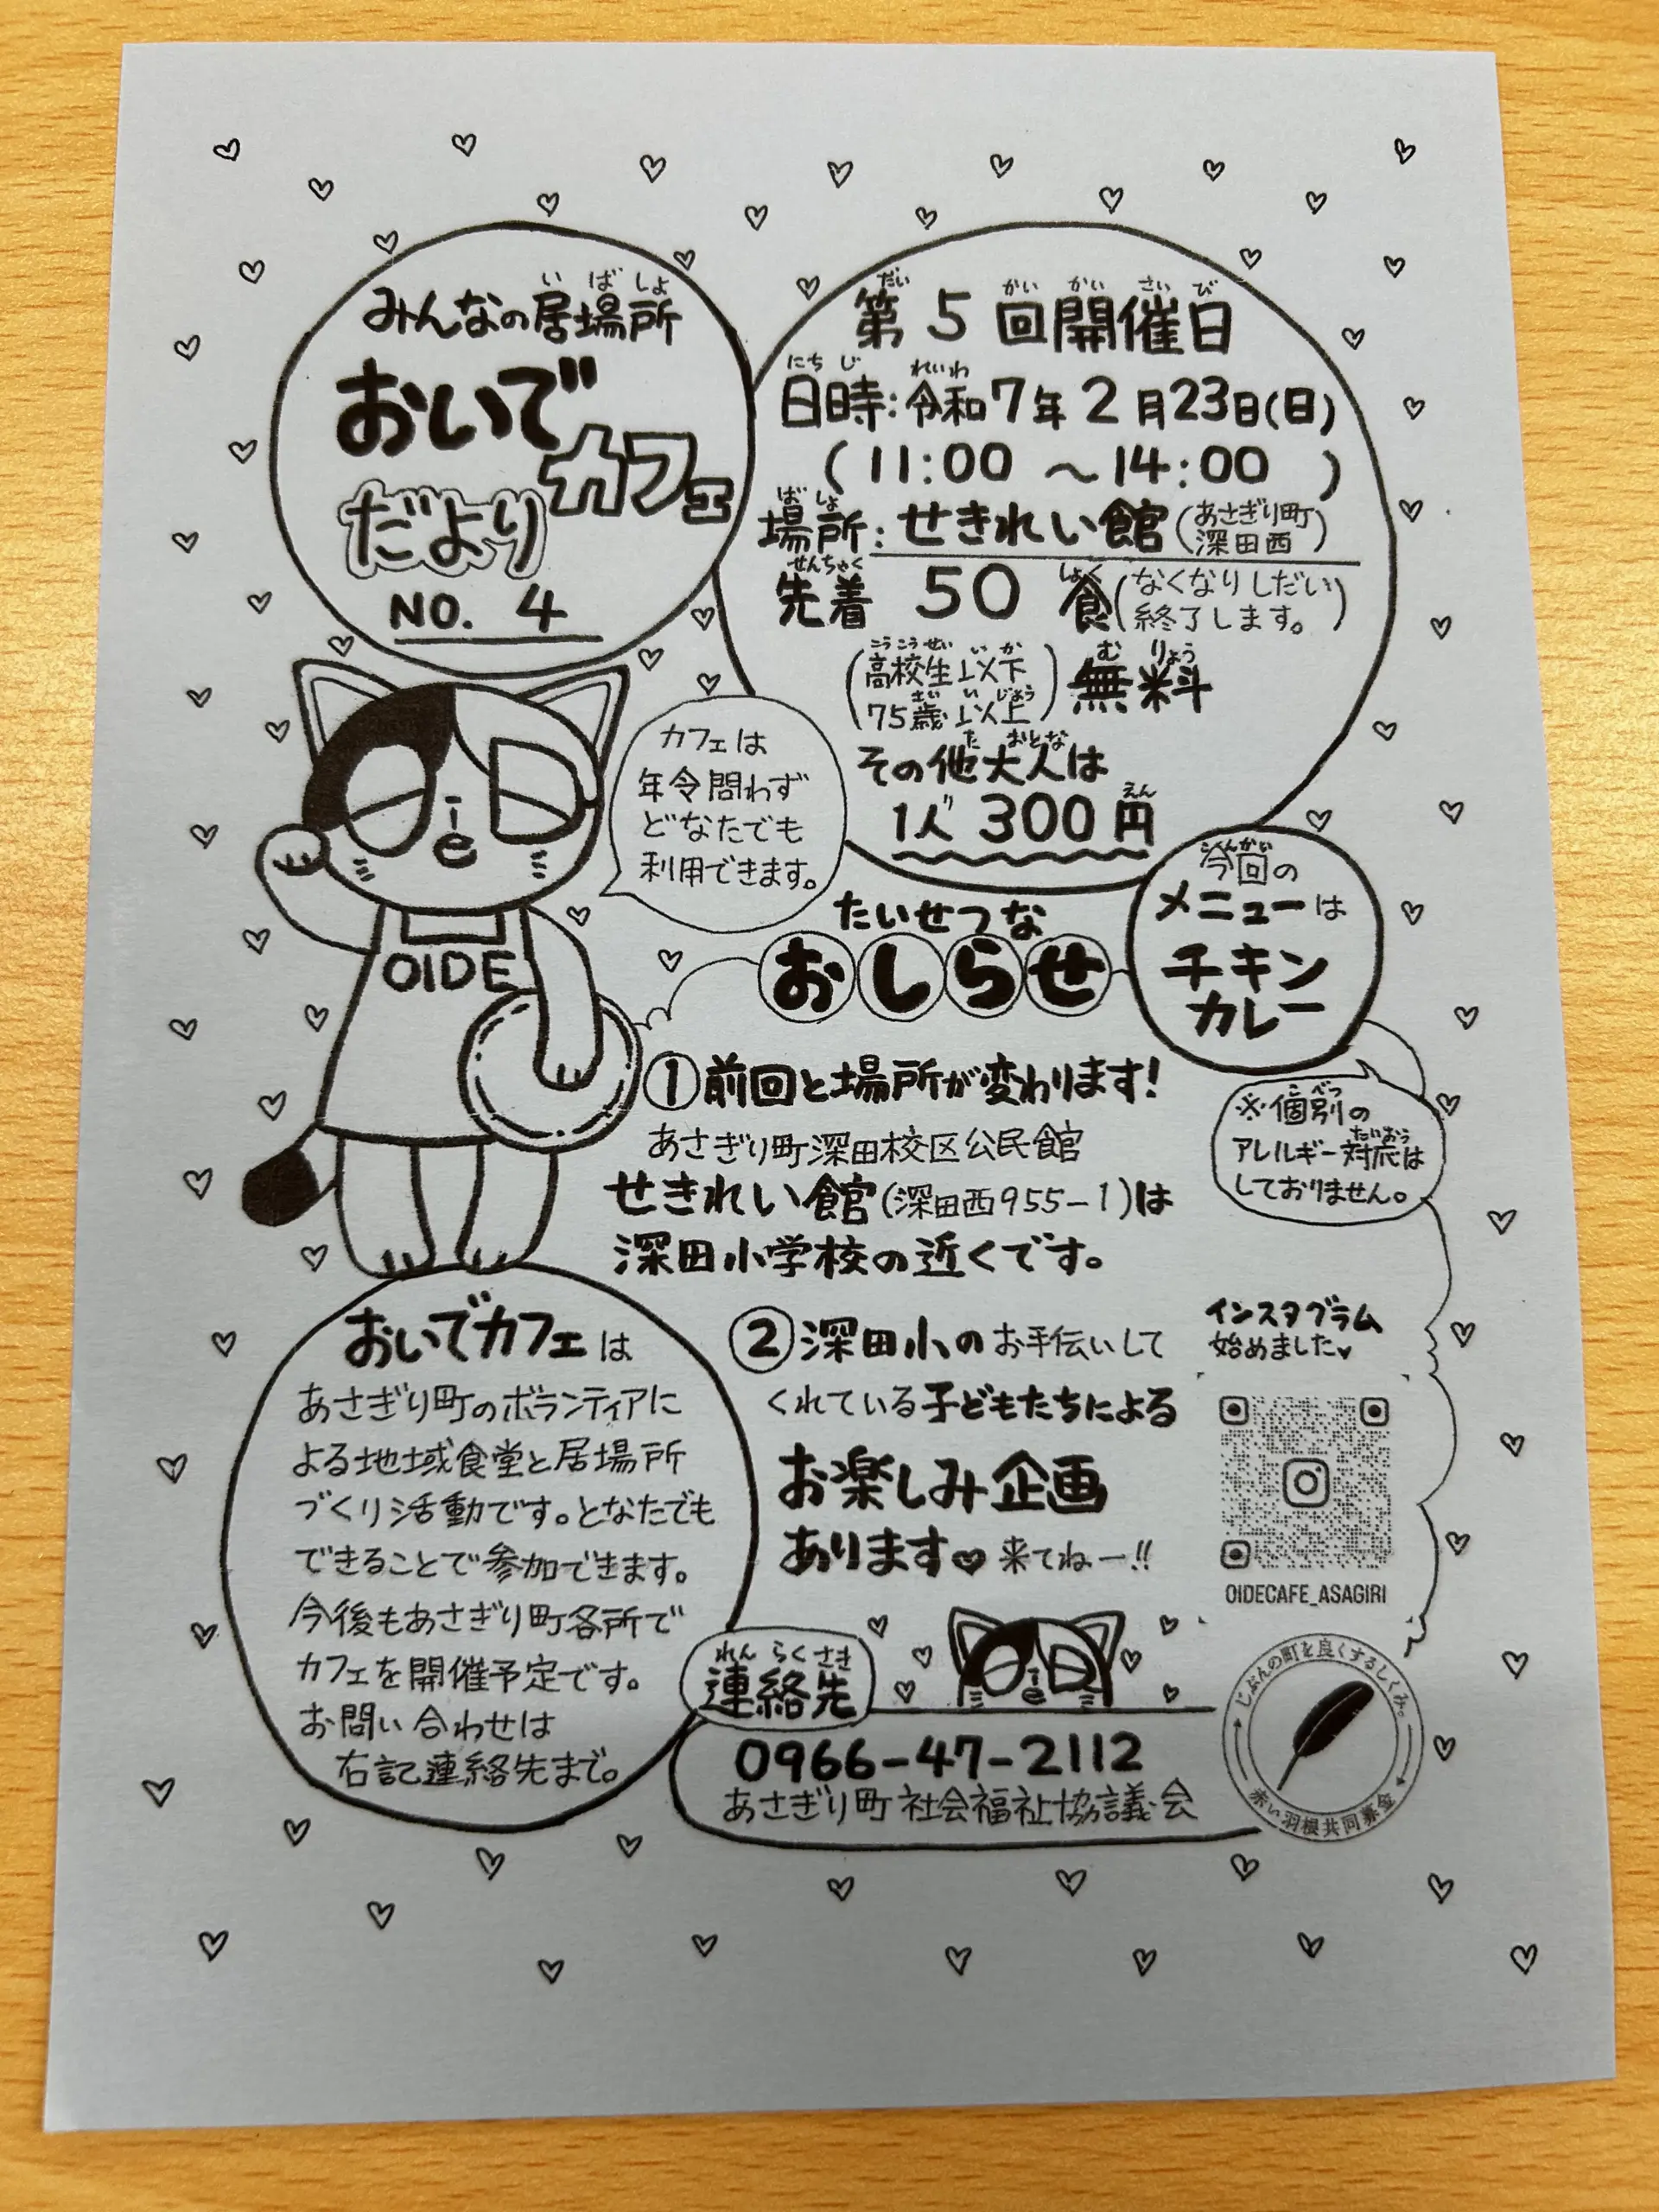 みんなの居場所
おいで
カフェ
だより
NO. 4
第5回開催日
日時:令和7年2月23日(日)
(11:00 ～14:00)
場所:せきれい館(あさぎり町深田西)
先着 50 食(なくなりしだい終了します。)
(高校生以下 75歳以上)無料
その他大人は
1人 300円
カフェは
年令問わず
どなたでも
利用できます。
OIDE
今回の
メニューは
チキン
カレー
※個別の
アレルギー対応は
しておりません。
たいせつな
おしらせ
①前回と場所が変わります!
あさぎり町深田校区公民館
せきれい館(深田西955-1)は
深田小学校の近くです。
②深田小のお手伝いして
くれている子どもたちによる
お楽しみ企画
あります♥来てねー!!
インスタグラム
始めました♥
OIDECAFE_ASAGIRI
おいでカフェは
あさぎり町のボランティアに
よる地域食堂と居場所
づくり活動です。となたでも
できることで参加できます。
今後もあさぎり町各所で
カフェを開催予定です。
お問い合わせは
右記連絡先まで。
連絡先
0966-47-2112
あさぎり町社会福祉協議会
じぶんの町を良くするしくみ。
赤い羽根共同募金